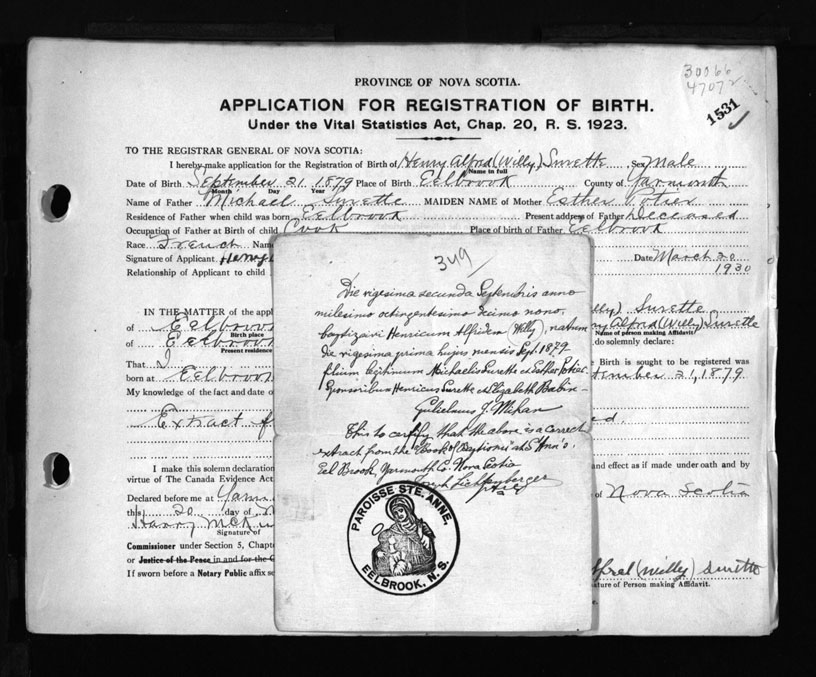 30066
47072
1531
PROVINCE OF NOVA SCOTIA.
APPLICATION FOR REGISTRATION OF BIRTH.
Under the Vital Statistics Act, Chap. 20, R. S. 1923.
TO THE REGISTRAR GENERAL OF NOVA SCOTIA:
I hereby make application for the Registration of Birth of Henry Alfred (Willy) Surette Sex Male
Name in full
Date of Birth September 21 1879 Place of Birth Eelbrook County of Yarmouth
Month Day Year
Name of Father Michael Surette MAIDEN NAME of Mother Esther Potier
Residence of Father when child was born Eelbrook Present address of Father Deceased
Occupation of Father at Birth of child Cook Place of birth of Father Eelbrook
Race French Name
Signature of Applicant Henry Date March 20
Relationship of Applicant to child 1930
IN THE MATTER of the appl Willy) Surette
of Eelbrook Alfred (Willy) Surette
Birth place Name of person making Affidavit.
of Eelbrook do solemnly declare:
Present residence
That I Birth is sought to be registered was
born at Eelbrook tember 21, 1879
My knowledge of the fact and date o
Extract f
I make this solemn declaration and effect as if made under oath and by
virtue of The Canada Evidence Act
Declared before me at Yarm of Nova Scotia
this 20 day of
Harry McK
Signature of
Commissioner under Section 5, Chapte
or Justice of the Peace in and for the C
If sworn before a Notary Public affix se
(Willy) Surette
ature of Person making Affidavit.
349
Die vigesima secunda Septembris anno
milesimo octingentesimo decimo nono,
baptizavi Henricum Alfridum (Willy), natum
die vigesima prima hujus mensis Sept. 1879
filium legitimum Michaelis Surette et Esther Potier.
Sponsoribus Henricus Surette et Elizabeth Babin
Gulielmus J. Mihan
This to certify that the above is a correct
extract from the "Book of Baptisms" at St Ann's.
Eel Brook, Yarmouth Co. Nova Scotia
PAROISSE STE. ANNE.
EELBROOK, N. S.